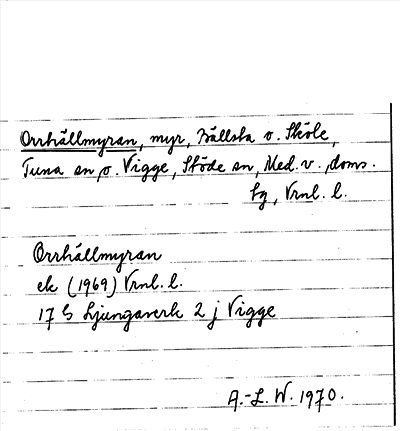 Orrhällmyran, myr, Bällsta o. Sköle,
Tuna sn, o. Vigge, Stöde sn, Med. v., doms.
tg, Vrnl. l.
Orrhällmyran
ek (1969) Vrnl. l.
17 G Ljungaverk 2 j Vigge
A.-L. W. 1970.